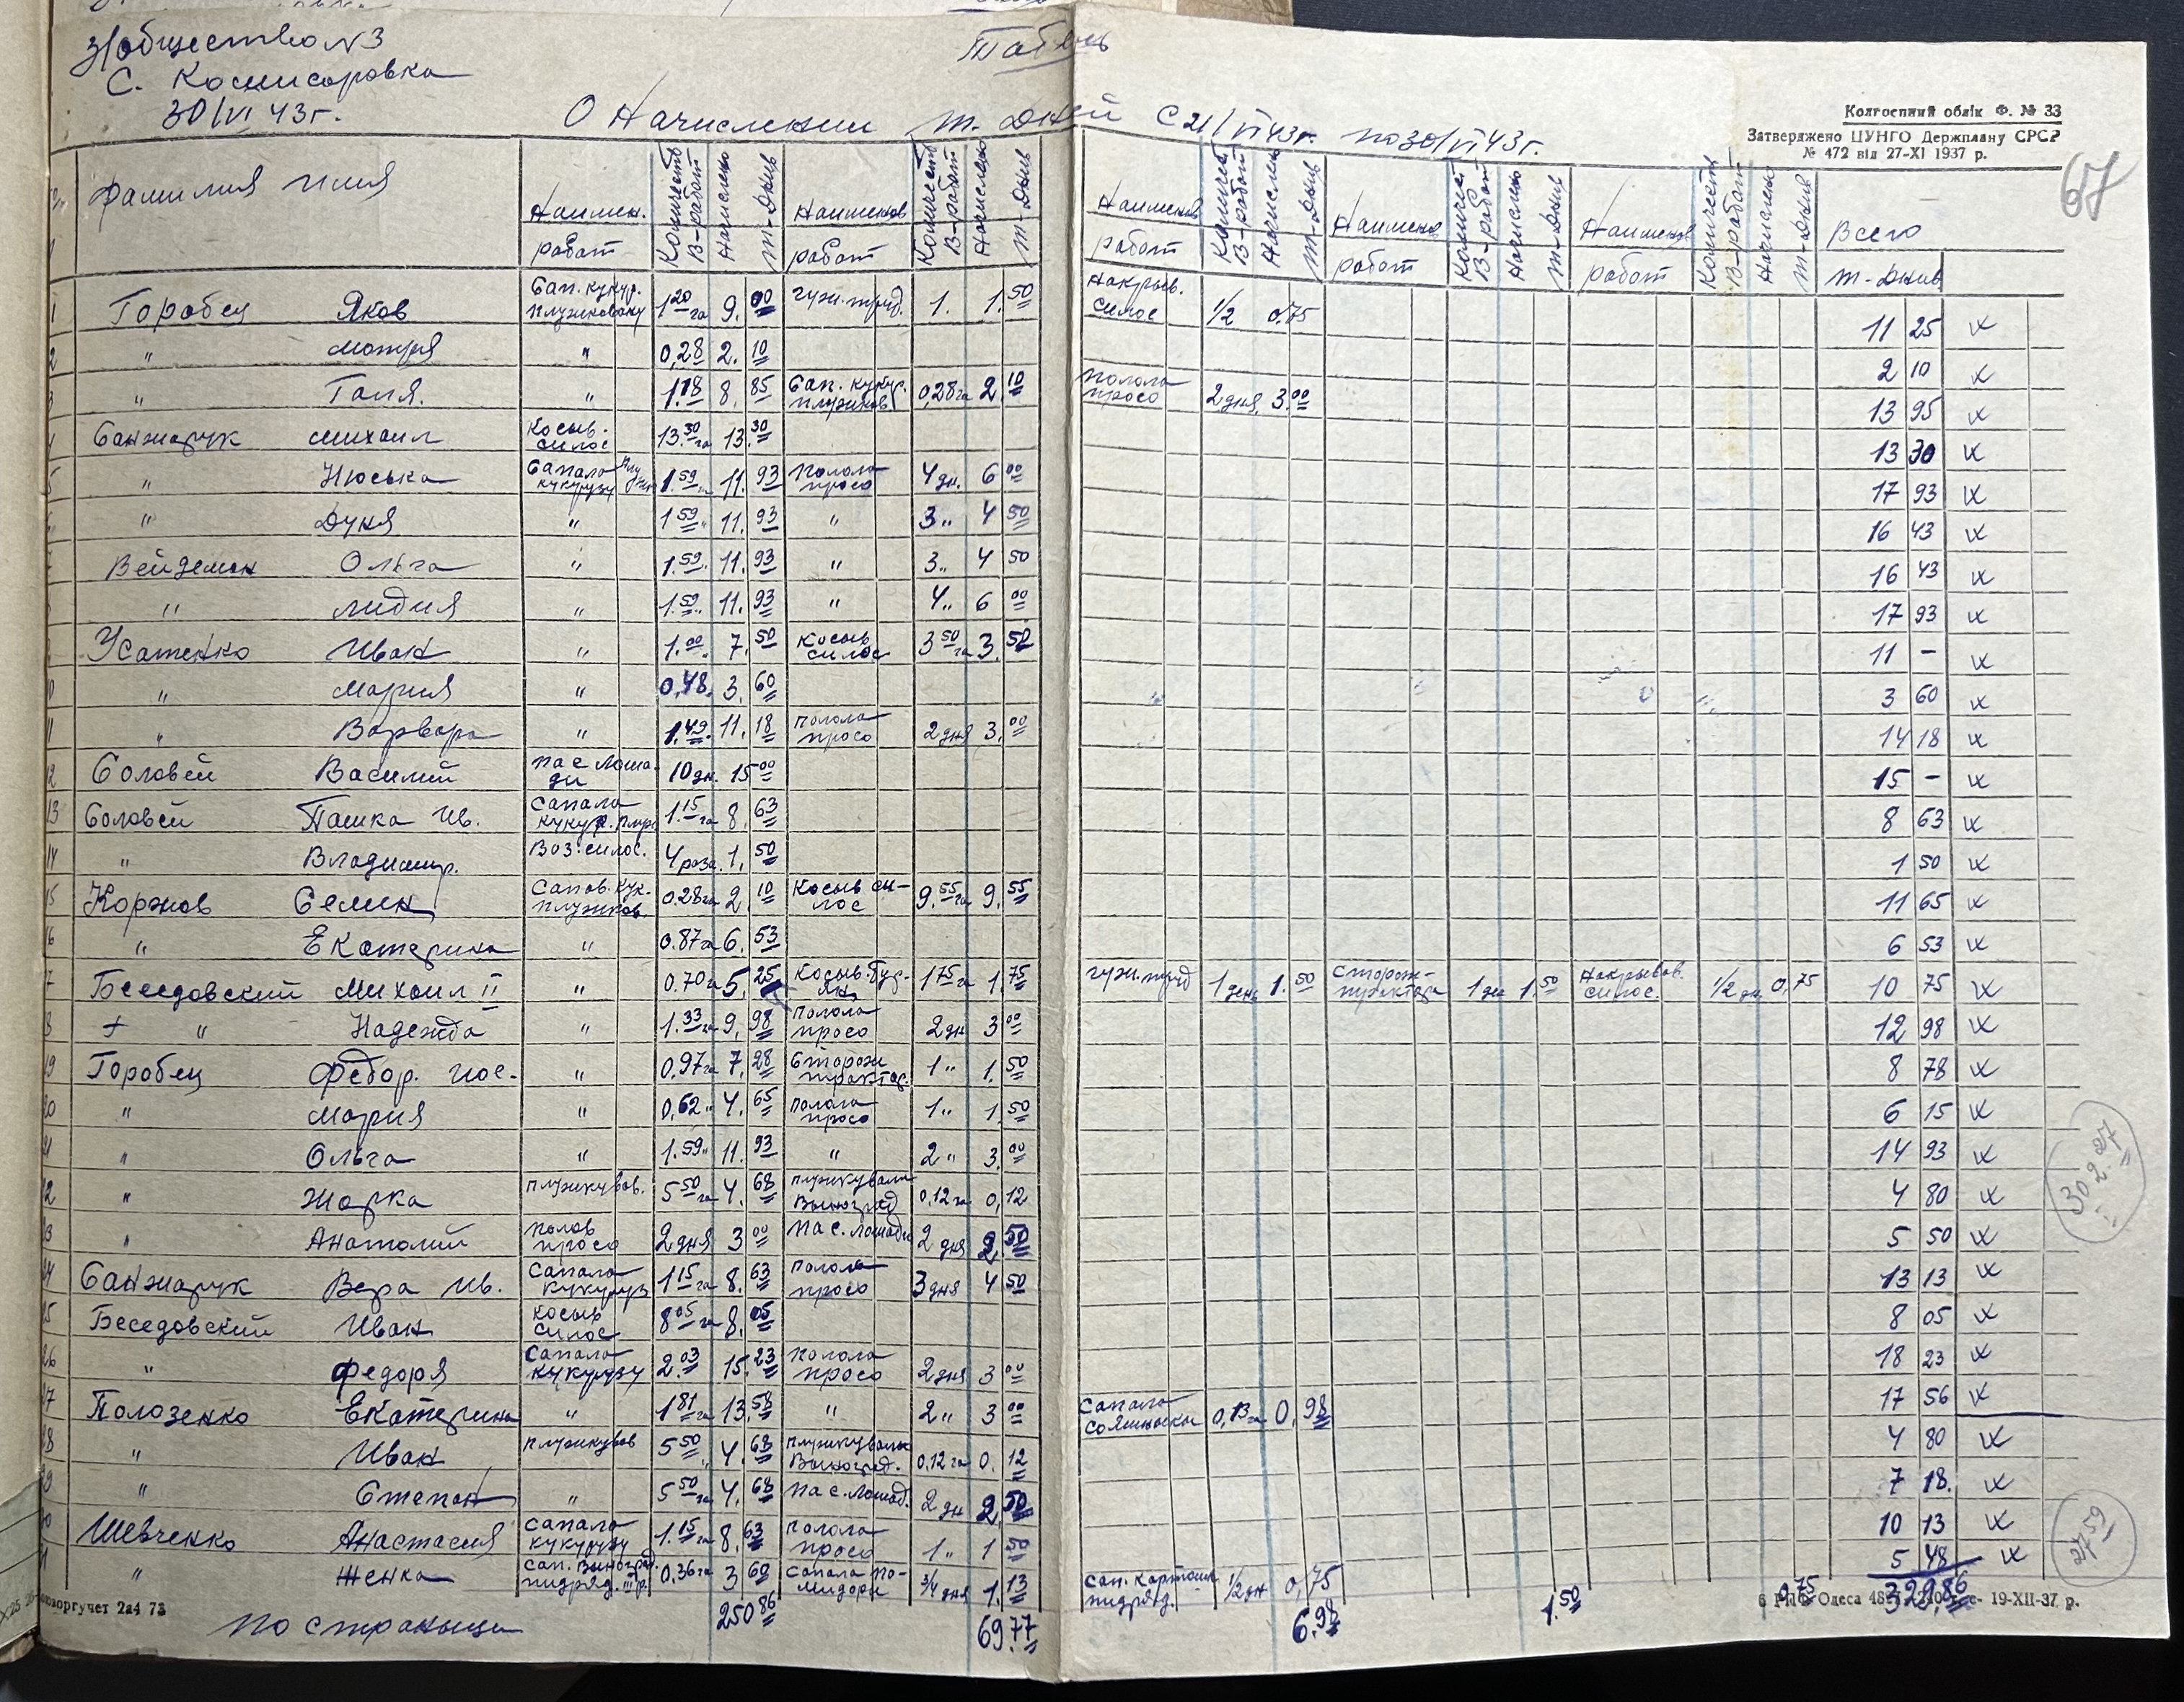 з/общество №3
С. Комисаровка
30/VI 43г.
Табель
О Начислении т. дней с 21/VI 43г. по 30/VI 43г.
Колгоспний облік Ф. № 33
Затверджено ЦУНГО Держплану СРСР
№ 472 від 27-XI 1937 р.
67
Фамилия имя | Наимен. работ | Количеств В-работ | Начислено т-дней | Наименов работ | Количеств В-работ | Начислено т-дней | Наименов работ | Количест В-работ | Начислено т-дней | Наименов работ | Количест В-работ | Начислено т-дней | Наименов работ | Количест В-работ | Начислено т-дней | Всего т-дней
1 Горобец Яков Сап. кукур. плужковану 1 20 га 9. 00 гуж. труд. 1. 1. 50 Накрыв. силос 1/2 0.75 11 25
2 " Мотря " 0,28 2. 10 2 10
3 " Галя. " 1.18 8. 85 Сап. кукур. плужков 0,28 га 2 10 полола просо 2 дня 3. 00 13 95
4 Санжарук Михаил Косыв. силос 13. 30 га 13. 30 13 30
5 " Нюська Сапала кукурузу 1. 59 11. 93 полола просо 4 дн. 6 00 17 93
" Дуня " 1 59 " 11. 93 " 3 " 4 50 16 43
Вейдеман Ольга " 1. 59 11. 93 " 3 " 4 50 16 43
" Лидия " 1. 59 " 11. 93 " 4 " 6 00 17 93
Усатенко Иван " 1. 00 7. 50 Косыв силос 3 50 га 3. 50 11 -
10 " Мария " 0,48. 3. 60 3 60
11 " Варвара " 1. 49. 11. 18 полола просо 2 дня 3. 00 14 18
12 Соловей Василий пас лошади 10 дн. 15 00 15 -
13 Соловей Пашка Ив. Сапала кукур. 1. 15 га 8. 63 8 63
14 " Владимир. Воз. силос. 4 раза. 1. 50 1 50
15 Коржов Семен Сапов. кук. плужков. 0.28 га 2. 10 Косыв силос 9. 55 га 9. 55 11 65
16 " Екатерина " 0.87 га 6. 53 6 53
17 Беседовский Михаил II " 0.70 га 5. 25 Косыв. 1 75 га 1. 75 гуж. труд 1 день 1. 50 Сторож. трактора 1 дн 1. 50 Накрывов. силос. 1/2 дн. 0,75 10 75
18 + " Надежда " 1. 33 га 9. 98 полола просо 2 дн 3 00 12 98
19 Горобец Федор. " 0.97 га 7. 28 Сторож трактор. 1 " 1. 50 8 78
20 " Мария " 0,62 " 4. 65 полола просо 1 " 1. 50 6 15
21 " Ольга " 1. 59 " 11. 93 " 2 " 3. 00 14 93
22 " Жорка плужкував. 5 50 га 4. 68 плужкували Виноград 0,12 га 0,12 4 80
23 " Анатолий полов просо 2 дня 3 00 пас. лошади 2 дня 2. 50 5 50
24 Санжарук Вера Ив. Сапала кукуруз 1 15 га 8. 63 полола просо 3 дня 4 50 13 13
25 Беседовский Иван косыв силос 8 05 га 8. 05 8 05
26 " Федоря Сапала кукурузу 2. 03 15. 23 полола просо 2 дня 3 00 18 23
27 Полозенко Екатерина " 1 81 га 13. 58 " 2 " 3 00 Сапала 0,13 га 0,98 17 56
28 " Иван плужкував 5 50 " 4. 68 плужкували Виноград. 0,12 га 0. 12 4 80
29 " Степан " 5 50 га 4. 68 пас. лошад. 2 дн 2. 50 7 18.
30 Шевченко Анастасия Сапала кукурузу 1. 15 га 8. 63 полола просо 1 " 1 50 10 13
31 " Женка Сап. Виноград. 0,36 га 3 60 Сапала помидоры 3/4 дня 1. 13 Сап. картошк 1/2 дн 0,75 5 48
302 27
27 59
По странице 250 86 69. 77 6. 98 1. 50 0,75 329,86
2а4 73
Одеса 19-XII-37 р.